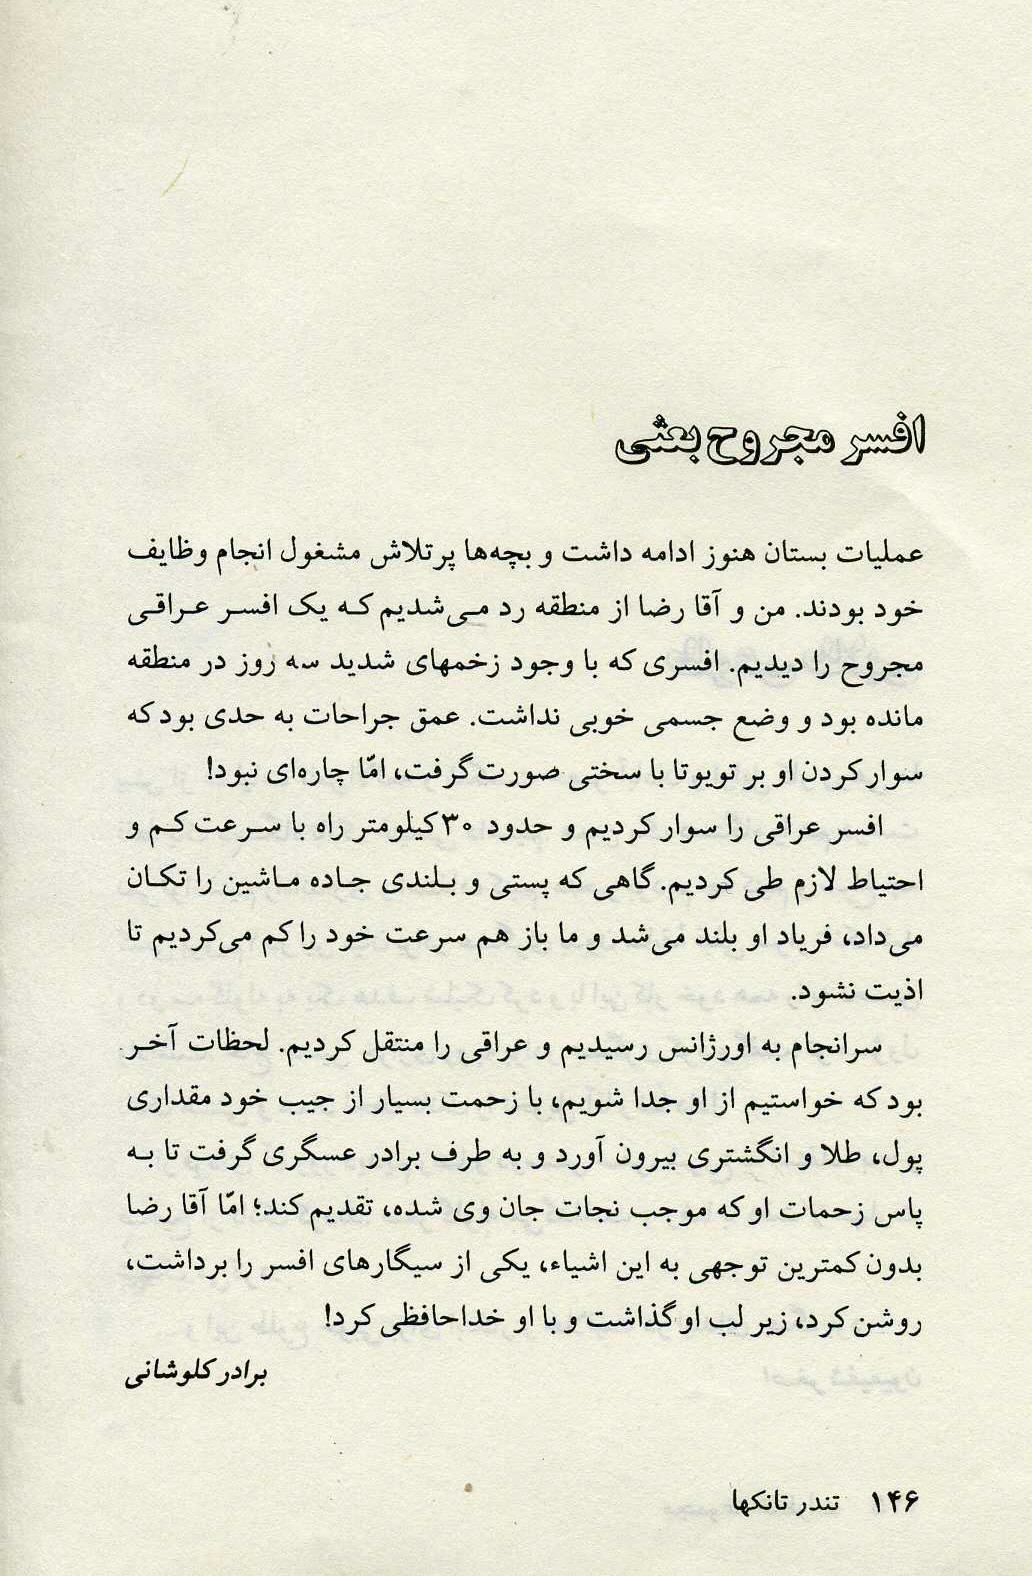 افسر مجروح بعثی
عملیات بستان هنوز ادامه داشت و بچه‌ها پرتلاش مشغول انجام وظایف
خود بودند. من و آقا رضا از منطقه رد می‌شدیم که یک افسر عراقی
مجروح را دیدیم. افسری که با وجود زخمهای شدید سه روز در منطقه
مانده بود و وضع جسمی خوبی نداشت. عمق جراحات به حدی بود که
سوار کردن او بر تویوتا با سختی صورت گرفت، امّا چاره‌ای نبود!
افسر عراقی را سوار کردیم و حدود ۳۰ کیلومتر راه با سرعت کم و
احتیاط لازم طی کردیم. گاهی که پستی و بلندی جاده ماشین را تکان
می‌داد، فریاد او بلند می‌شد و ما باز هم سرعت خود را کم می‌کردیم تا
اذیت نشود.
سرانجام به اورژانس رسیدیم و عراقی را منتقل کردیم. لحظات آخر
بود که خواستیم از او جدا شویم، با زحمت بسیار از جیب خود مقداری
پول، طلا و انگشتری بیرون آورد و به طرف برادر عسگری گرفت تا به
پاس زحمات او که موجب نجات جان وی شده، تقدیم کند؛ امّا آقا رضا
بدون کمترین توجهی به این اشیاء، یکی از سیگارهای افسر را برداشت،
روشن کرد، زیر لب او گذاشت و با او خداحافظی کرد!
برادر کلوشانی
۱۴۶ تندر تانکها